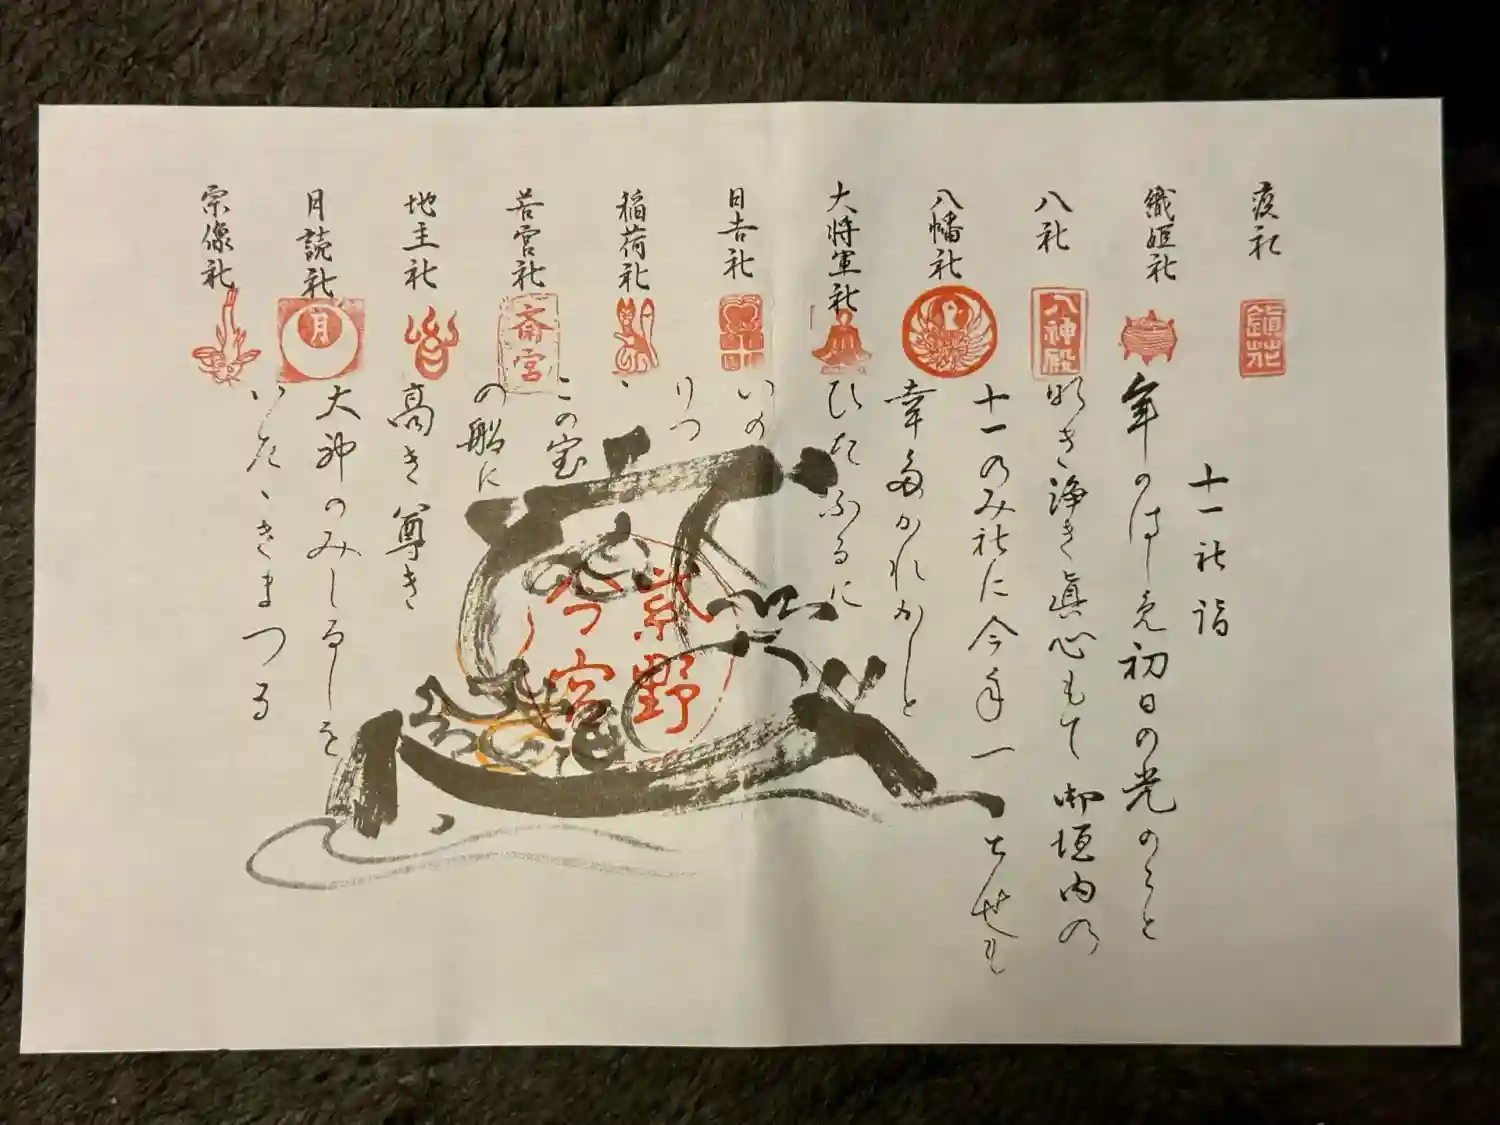 疫社
織姫社
八社
八幡社
大将軍社
日吉社
稲荷社
若宮社
地主社
月読社
宗像社
鎮花
八神殿
斎宮
月
十一社詣
年のはしめ初日の光のこと
明き浄き眞心もて御垣内の
十一のみ社に今年一とせも
幸多かれかしと
ひたふるに
いの
りつゝ
この宝
の船に
高き尊き
大神のみしるしを
いたゝきまつる
紫野
今宮